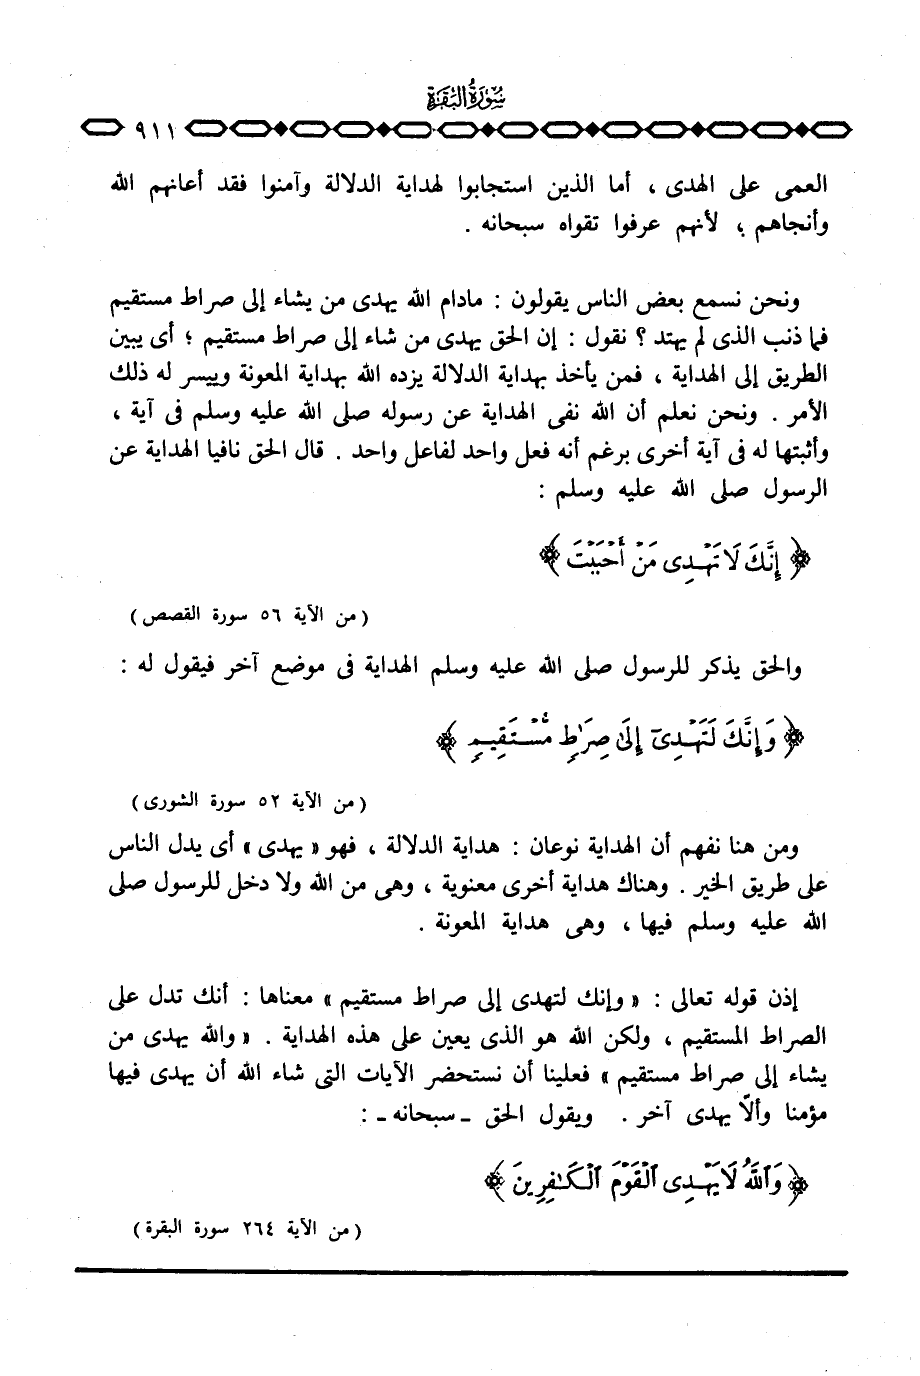 سُورَةُ البَقَرَة
٩١١
العمى على الهدى ، أما الذين استجابوا لهداية الدلالة وآمنوا فقد أعانهم الله
وأنجاهم ؛ لأنهم عرفوا تقواه سبحانه .
ونحن نسمع بعض الناس يقولون : مادام الله يهدى من يشاء إلى صراط مستقيم
فما ذنب الذى لم يهتد ؟ نقول : إن الحق يهدى من شاء إلى صراط مستقيم ؛ أى يبين
الطريق إلى الهداية ، فمن يأخذ بهداية الدلالة يزده الله بهداية المعونة وييسر له ذلك
الأمر . ونحن نعلم أن الله نفى الهداية عن رسوله صلى الله عليه وسلم فى آية ،
وأثبتها له فى آية أخرى برغم أنه فعل واحد لفاعل واحد . قال الحق نافيا الهداية عن
الرسول صلى الله عليه وسلم :
﴿ إِنَّكَ لَا تَهْدِى مَنْ أَحْبَبْتَ ﴾
( من الآية ٥٦ سورة القصص )
والحق يذكر للرسول صلى الله عليه وسلم الهداية فى موضع آخر فيقول له :
﴿ وَإِنَّكَ لَتَهْدِىٓ إِلَىٰ صِرَٰطٍ مُّسْتَقِيمٍ ﴾
( من الآية ٥٢ سورة الشورى )
ومن هنا نفهم أن الهداية نوعان : هداية الدلالة ، فهو « يهدى » أى يدل الناس
على طريق الخير . وهناك هداية أخرى معنوية ، وهى من الله ولا دخل للرسول صلى
الله عليه وسلم فيها ، وهى هداية المعونة .
إذن قوله تعالى : « وإنك لتهدى إلى صراط مستقيم » معناها : أنك تدل على
الصراط المستقيم ، ولكن الله هو الذى يعين على هذه الهداية . « والله يهدى من
يشاء إلى صراط مستقيم » فعلينا أن نستحضر الآيات التى شاء الله أن يهدى فيها
مؤمنا وألاّ يهدى آخر . ويقول الحق ـ سبحانه ـ :
﴿ وَٱللَّهُ لَا يَهْدِى ٱلْقَوْمَ ٱلْكَٰفِرِينَ ﴾
( من الآية ٢٦٤ سورة البقرة )